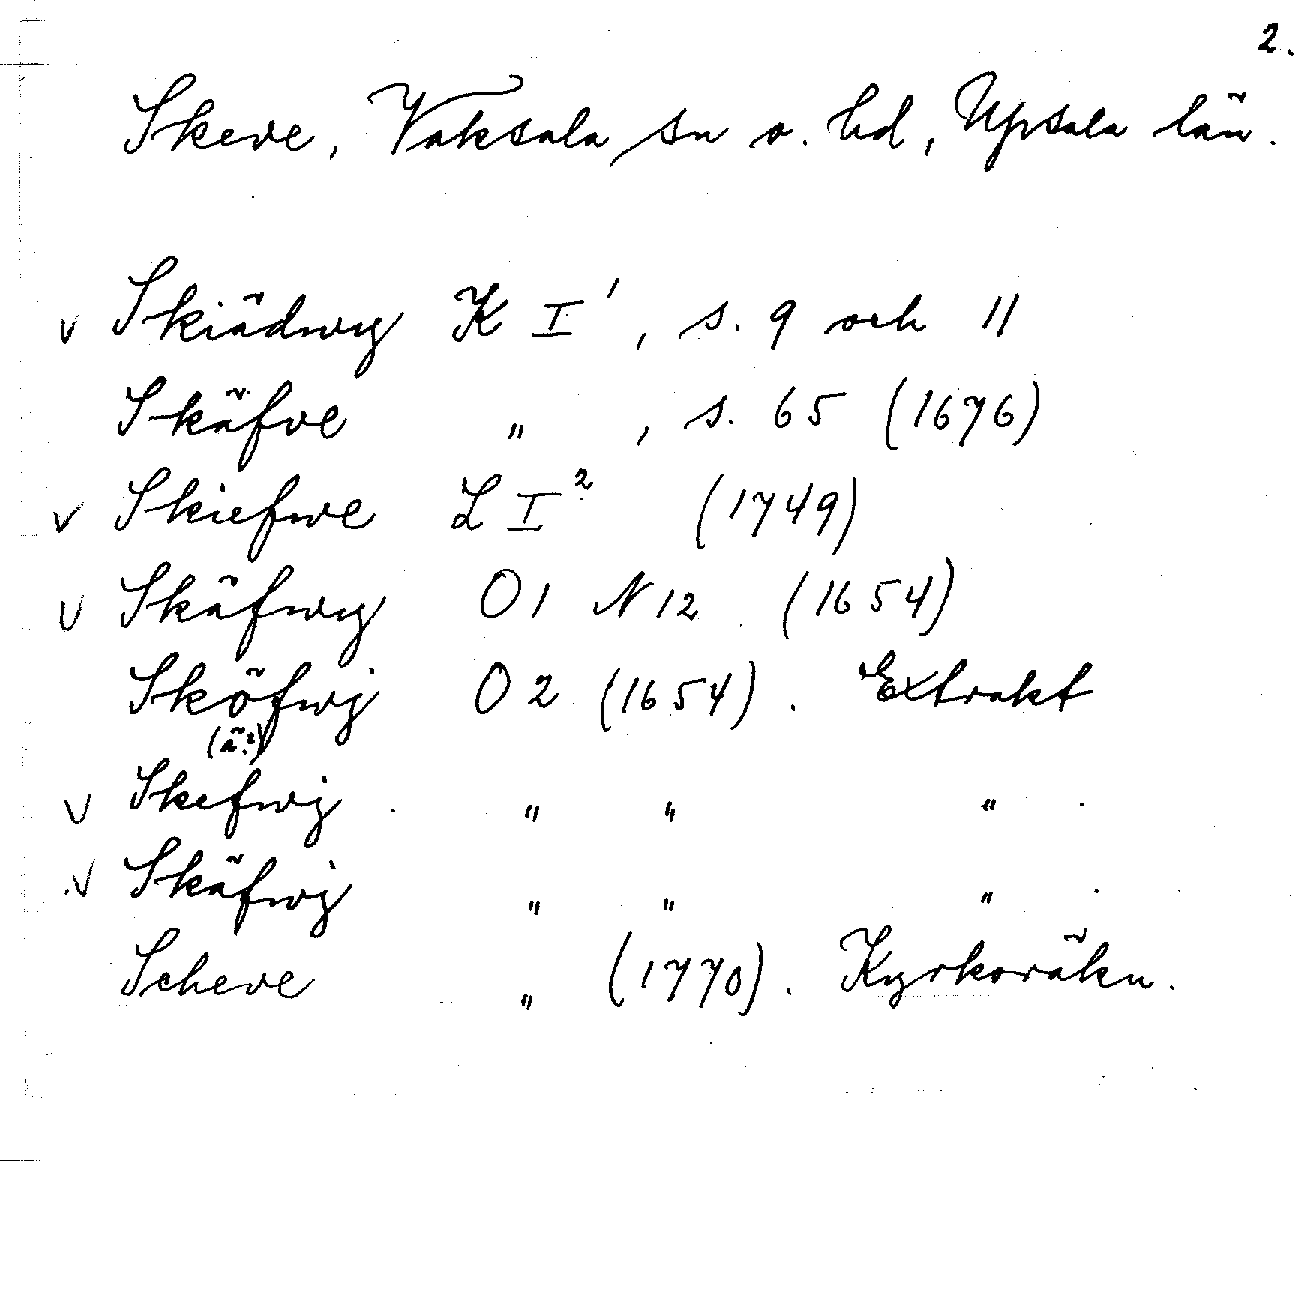 2.
Skeve, Vaksala sn o. hd, Upsala län.
v Skiädwij K I¹, s. 9 och 11
Skäfve " , s. 65 (1676)
v Skiefwe L I² (1749)
v Skäfwij O1 N12 (1654)
Sköfwij O2 (1654). Extrakt
(ä?)
v Skefwij " " "
v Skäfwij " " "
Scheve " (1770). Kyrkoräkn.